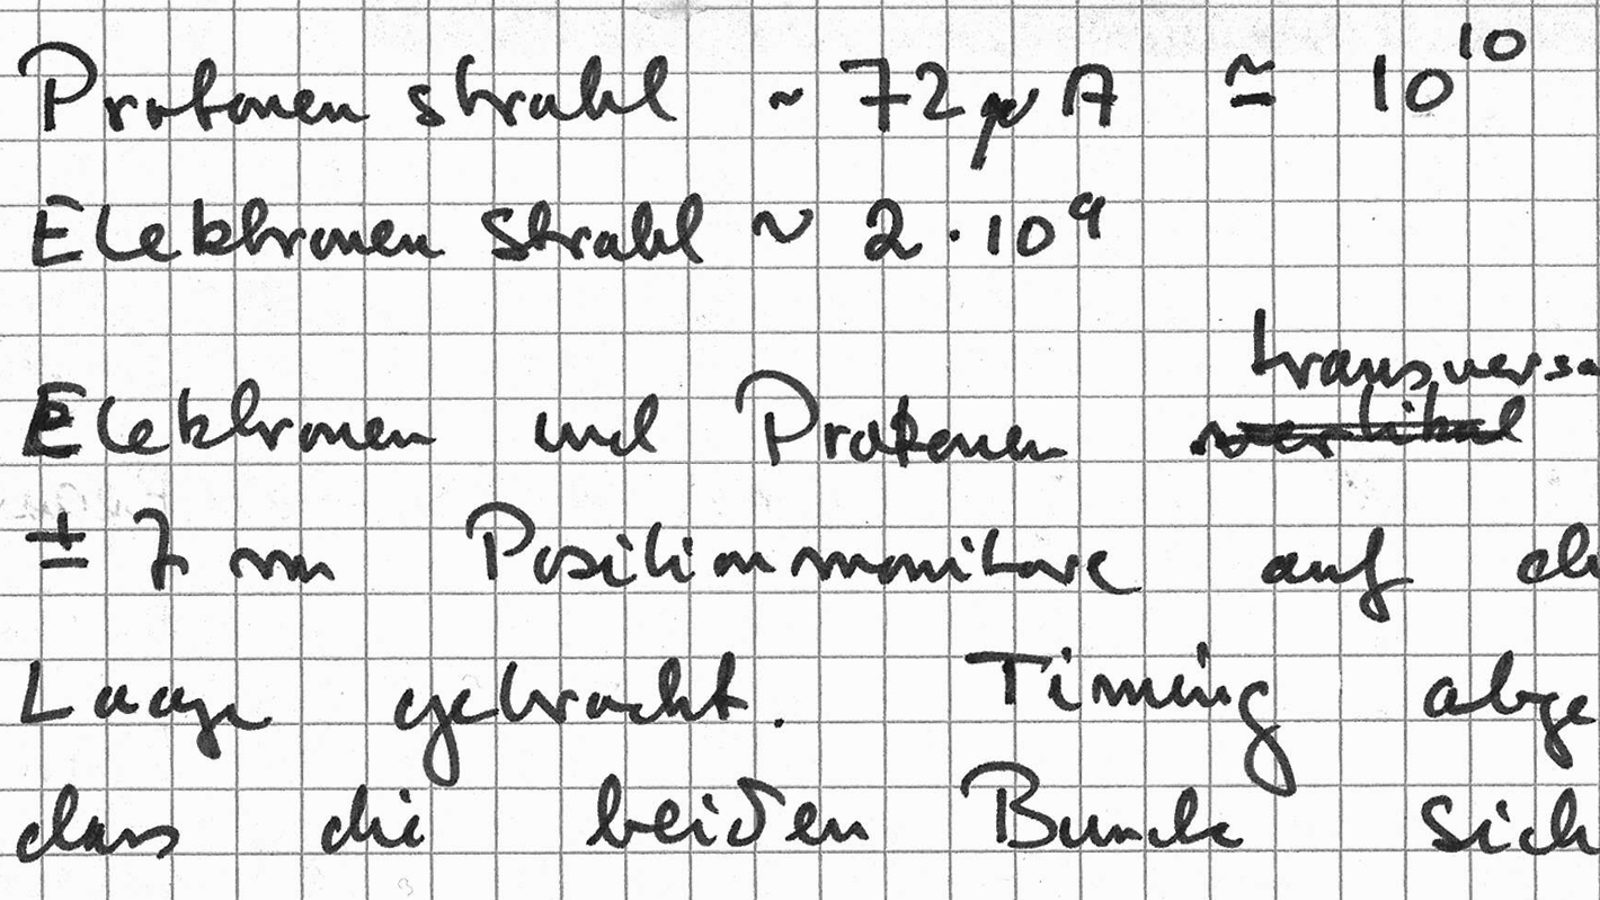 Protonen strahl ~ 72 μA ≃ 10^10
Elektronen strahl ~ 2 · 10^9
transversa
Elektronen und Protonen vertikal
± 7 mm Positionmonitore auf
Lage gebracht. Timing abge
dass die beiden Bunche sich